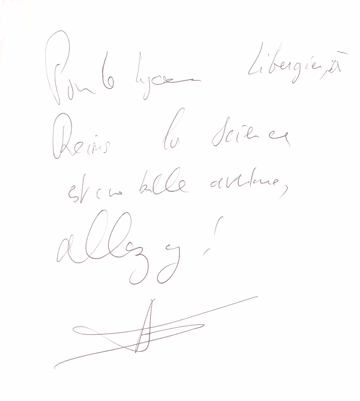 Pour le lycée Libergier, à
Reims la science
est une belle aventure,
allez y !